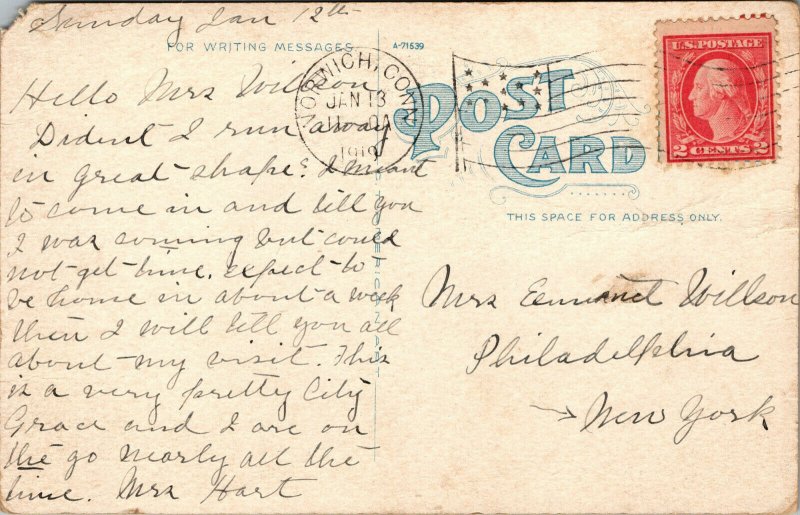 Sunday Jan 12th
FOR WRITING MESSAGES
A-71539
Hello Mrs Willson
Dident I run away
in great shape? I meant
to come in and tell you
I was coming but could
not get time. expect to
be home in about a week
then I will tell you all
about my visit. This
is a very pretty City
Grace and I are on
the go nearly all the
time. Mrs Hart
NORWICH, CONN
JAN 13
1919
POST
CARD
THIS SPACE FOR ADDRESS ONLY.
U.S. POSTAGE
2 CENTS 2
Mrs Willson
Philadelphia
New York